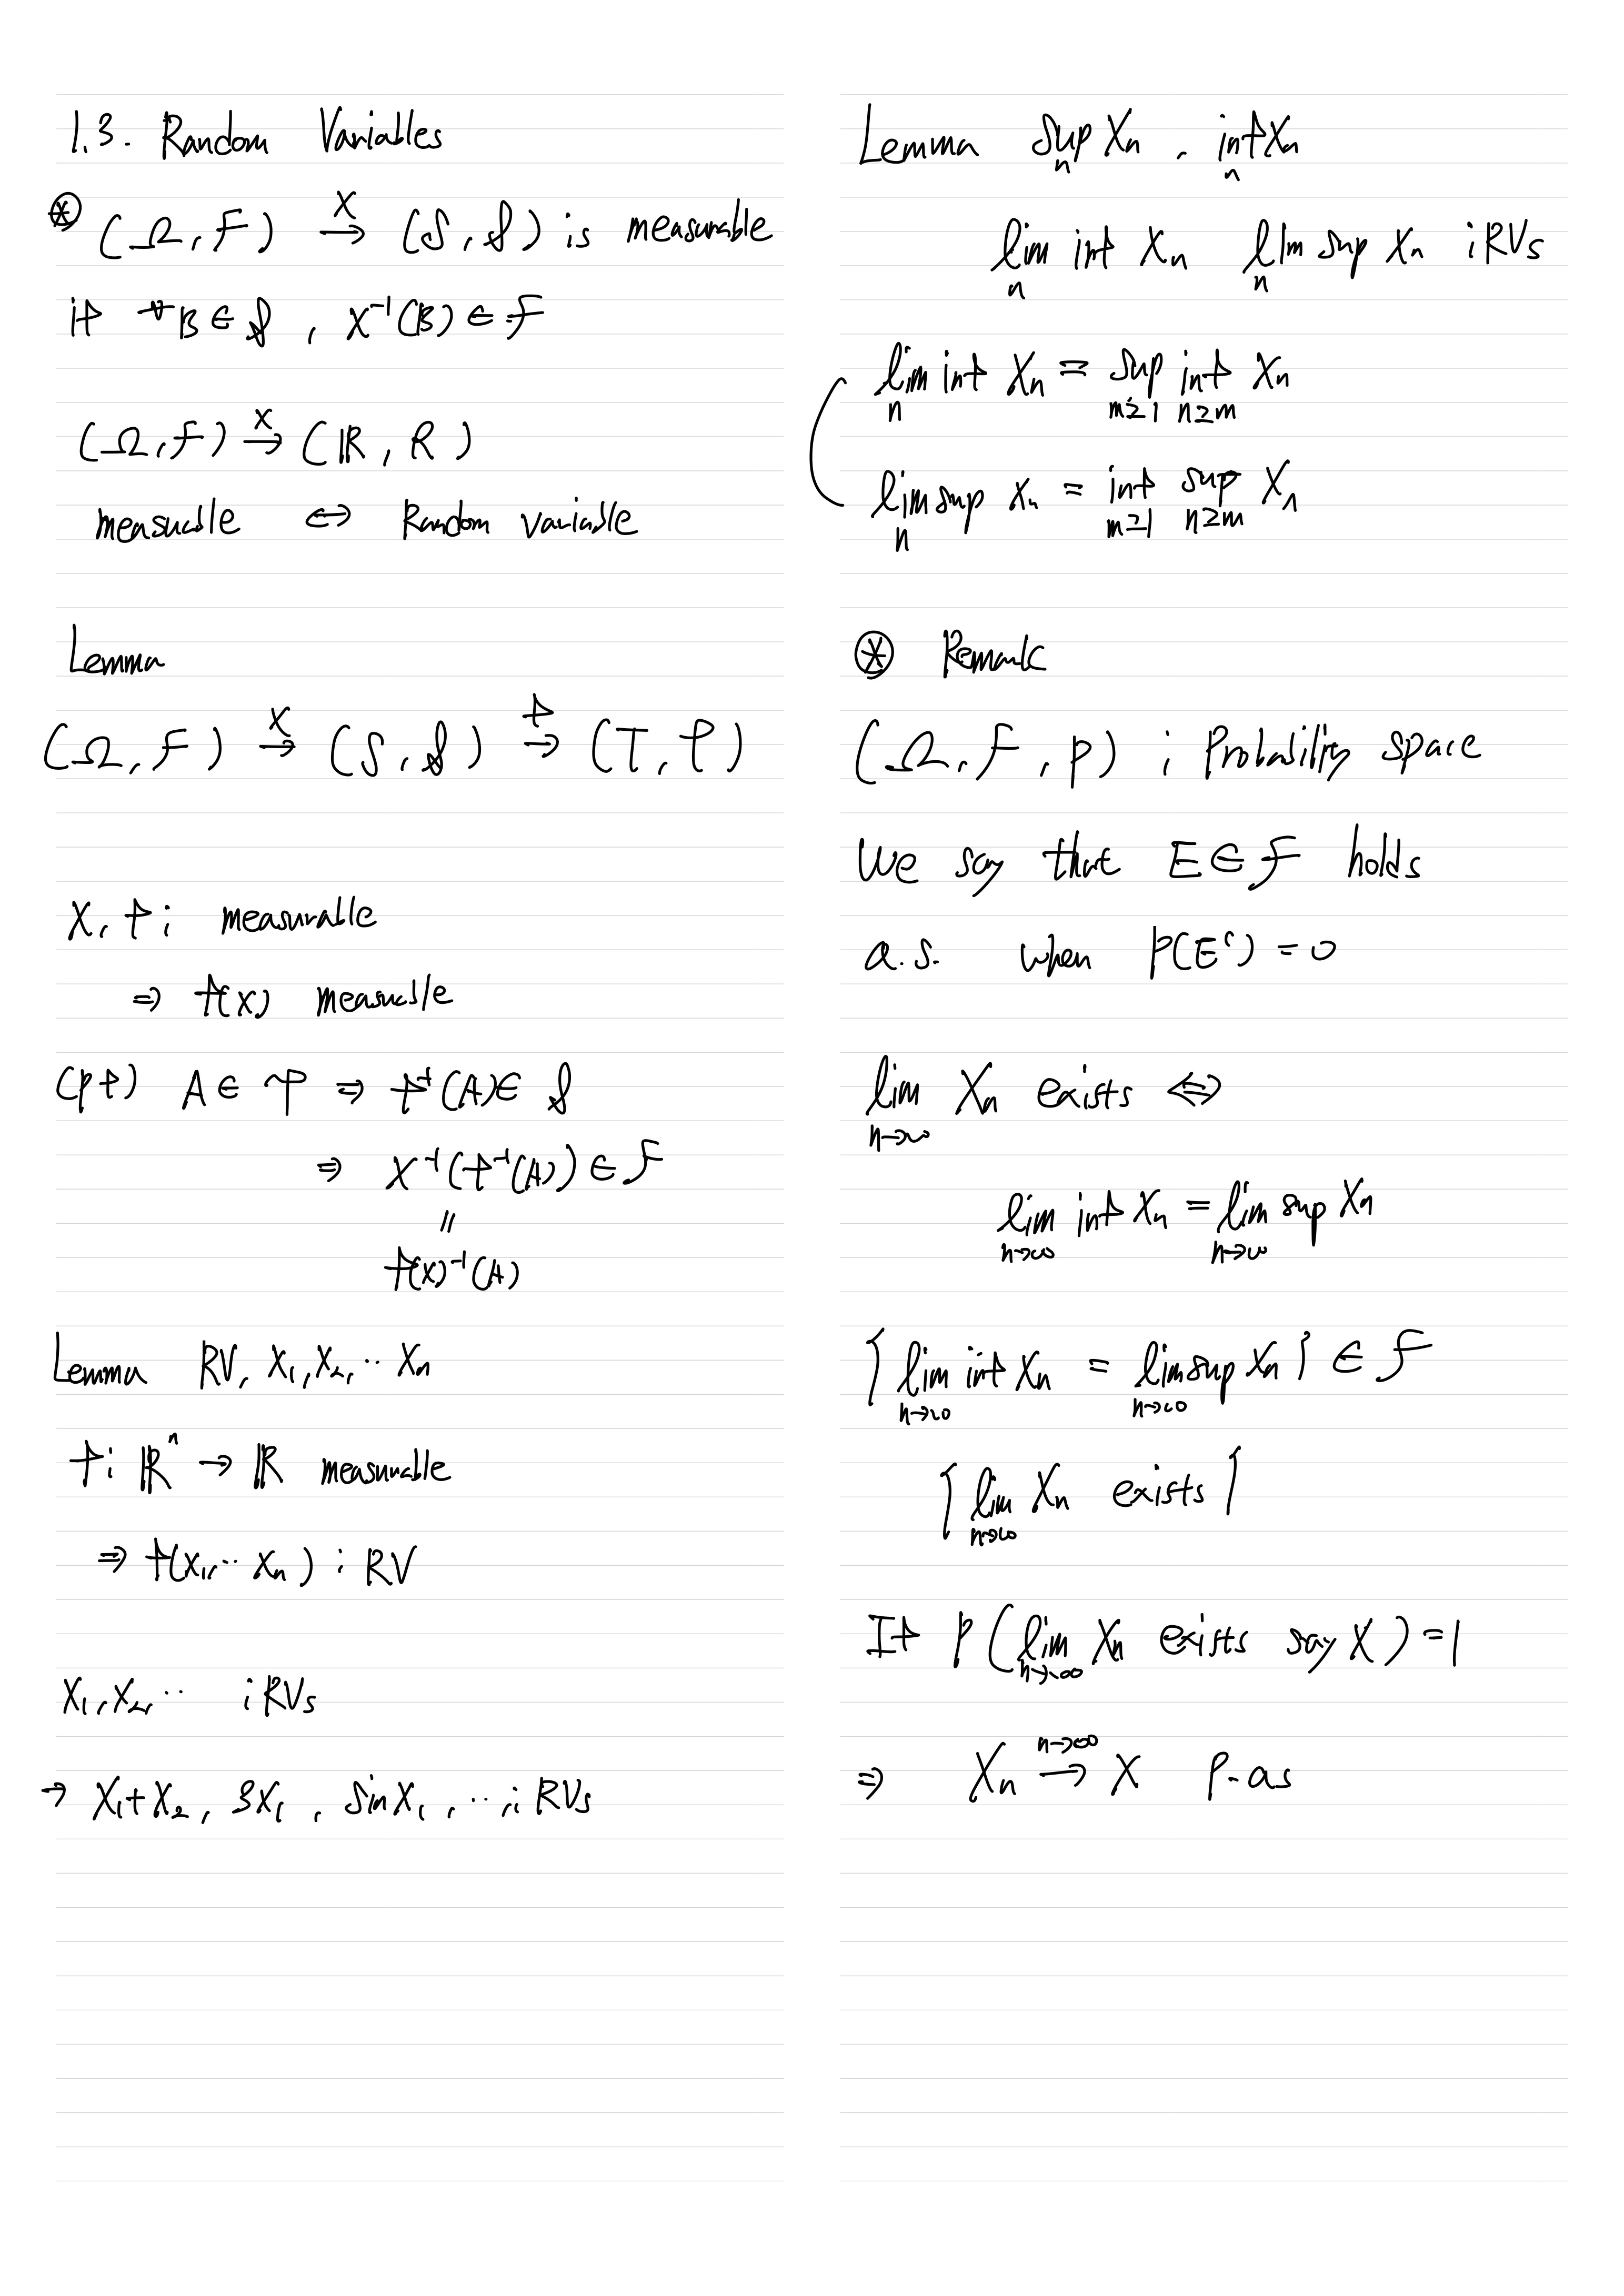 1.3. Random Variables
⊛ (Ω, F) →^X (S, 𝒮) is measurable
if ∀B ∈ 𝒮, X⁻¹(B) ∈ F
(Ω, F) →^X (ℝ, R)
measuable ⇔ Random variable
Lemma
(Ω, F) →^X (S, 𝒮) →^f (T, 𝒯)
X, f ; measurable
⇒ f(X) measuable
(pf) A ∈ 𝒯 ⇒ f⁻¹(A) ∈ 𝒮
⇒ X⁻¹(f⁻¹(A)) ∈ F
=
f(X)⁻¹(A)
Lemma RV, X₁, X₂, ‥ Xₙ
f: ℝⁿ → ℝ measurable
⇒ f(X₁, ‥ Xₙ) : RV
X₁, X₂, ‥ ; RVs
→ X₁+X₂, 3X₁, sin X₁, ‥, ; RVs
Lemma sup_n Xₙ, inf_n Xₙ
lim_n inf Xₙ lim_n sup Xₙ ; RVs
lim_n inf Xₙ = sup_{m≥1} inf_{n≥m} Xₙ
lim_n sup Xₙ = inf_{m≥1} sup_{n≥m} Xₙ
⊛ Remark
(Ω, F, P) ; Probability space
We say that E ∈ F holds
a.s. when P(Eᶜ) = 0
lim_{n→∞} Xₙ exists ⇔
lim_{n→∞} inf Xₙ = lim_{n→∞} sup Xₙ
{lim_{n→∞} inf Xₙ = lim_{n→∞} sup Xₙ} ∈ F
{lim_{n→∞} Xₙ exists}
If P(lim_{n→∞} Xₙ exists say X) = 1
⇒ Xₙ →^{n→∞} X P-as